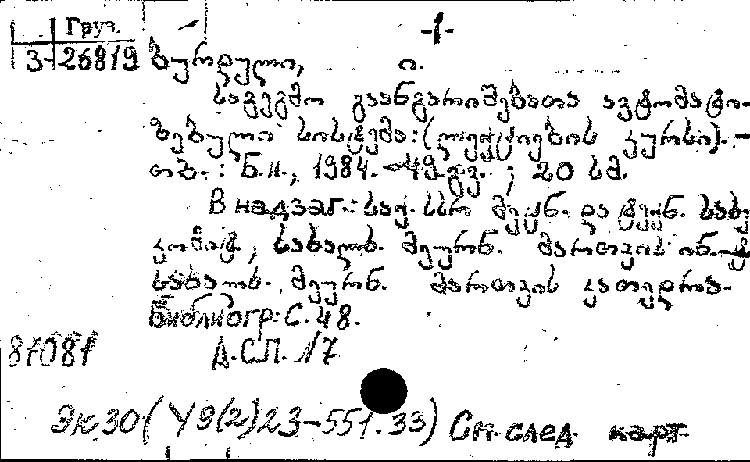 -1-
Груз.
3-26819
ბურდული, ი.
საგეგმო გაანგარიშებათა ავტომატი-
ზებული სისტემა: (ლექციების კურსი). -
თბ. : Б.и., 1984. - 49 გვ. ; 20 სმ.
В надзаг.: საქ. სსრ მეცნ. და ტექნ. სახ.
კომიტ., სახალხ. მეურნ. მართვის ინ.-ტ
სახალხ. მეურნ. მართვის კათედრა.
Библиогр: С. 48.
81081 Д.С.П. 17
Эк.30 (У9(2)23-551.33) См. след. карт.